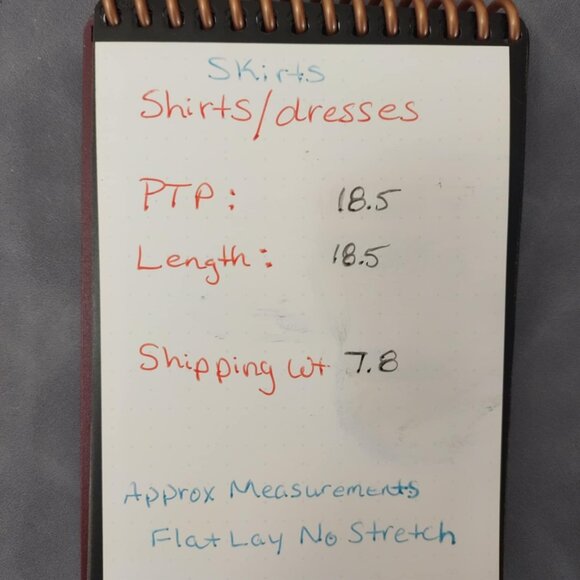 Skirts
Shirts/dresses
PTP: 18.5
Length: 18.5
Shipping Wt 7.8
Approx Measurements
Flat Lay No Stretch